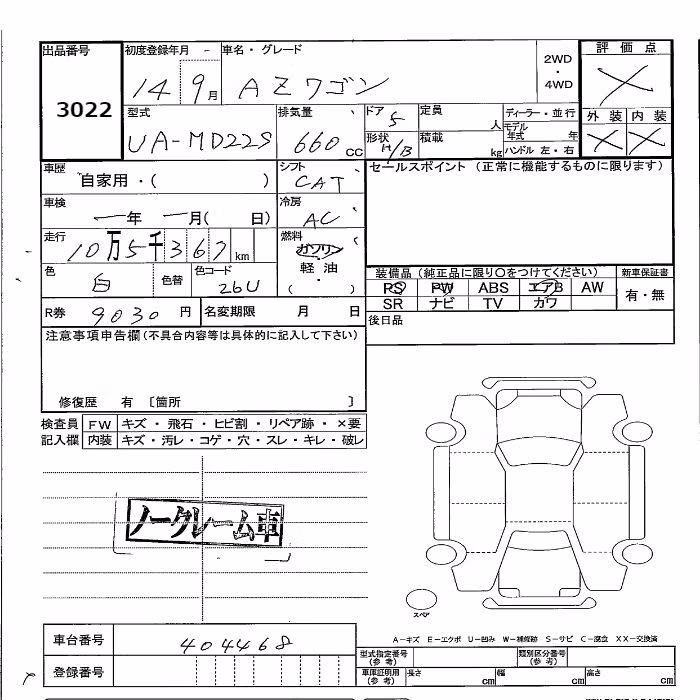 出品番号 初度登録年月 車名・グレード 2WD・4WD 評価点
3022 14 9月 AZワゴン
型式 排気量 ドア 5 定員 人 ディーラー・並行 外装 内装
UA-MD22S 660cc 形状 H/B 積載 kg モデル年式 年 ハンドル 左・右
車歴 自家用・( ) シフト CAT セールスポイント (正常に機能するものに限ります)
車検 ー年 ー月( 日) 冷房 AC
走行 10万5千367km 燃料 ガソリン・軽油・( )
色 白 色替 色コード 26U 装備品 (純正品に限り○をつけてください) 新車保証書
PS PW ABS エアB AW 有・無
R券 9030円 名変期限 月 日 SR ナビ TV カワ
注意事項申告欄(不具合内容等は具体的に記入して下さい) 後日品
修復歴 有 〔箇所 〕
検査員記入欄 FW キズ・飛石・ヒビ割・リペア跡・×要
内装 キズ・汚レ・コゲ・穴・スレ・キレ・破レ
ノークレーム車
スペア
A-キズ E-エクボ U-凹み W-補修跡 S-サビ C-腐食 XX-交換済
車台番号 404468 型式指定番号(参考) 類別区分番号(参考)
登録番号 車庫証明用(参考) 長さ cm 幅 cm 高さ cm